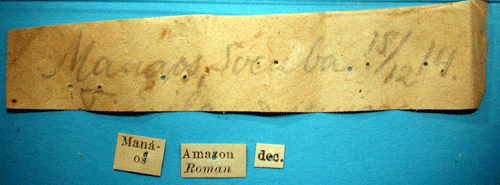 Manaos, Socuba 15/12 14.
Maná-
os
Amazon
Roman
dec.